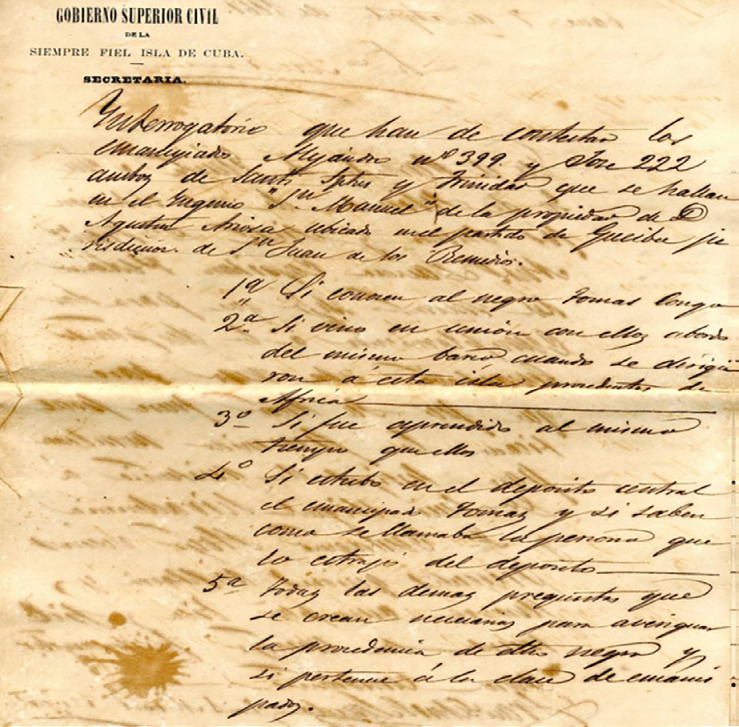 GOBIERNO SUPERIOR CIVIL
DE LA
SIEMPRE FIEL ISLA DE CUBA.
SECRETARIA.
Interrogatorio que han de contestar los
emancipados Alejandro nº 399. y José 222
ambos de Santi Sptus y Trinidad que se hallan
en el Ingenio "Sn Manuel" de la propiedad de D
Agustin Ariosa ubicado en el partido de Gueiba ju
risdiccion de Sn Juan de los Remedios.
1ª Si conocen al negro Tomas Congo
2ª Si vino en union con ellos abordo
del mismo barco cuando se dirigie
ron á esta isla procedentes de
Africa
3º Si fue aprendido al mismo
tiempo que ellos
4º Si estubo en el deposito central
el emancipado Tomas y si saben
como se llamaba la persona que
lo estrajo del deposito
5ª Todas las demas preguntas que
se crean necesarias para averiguar
la procedencia de dho negro y
si pertenece á la clase de emanci
pados.